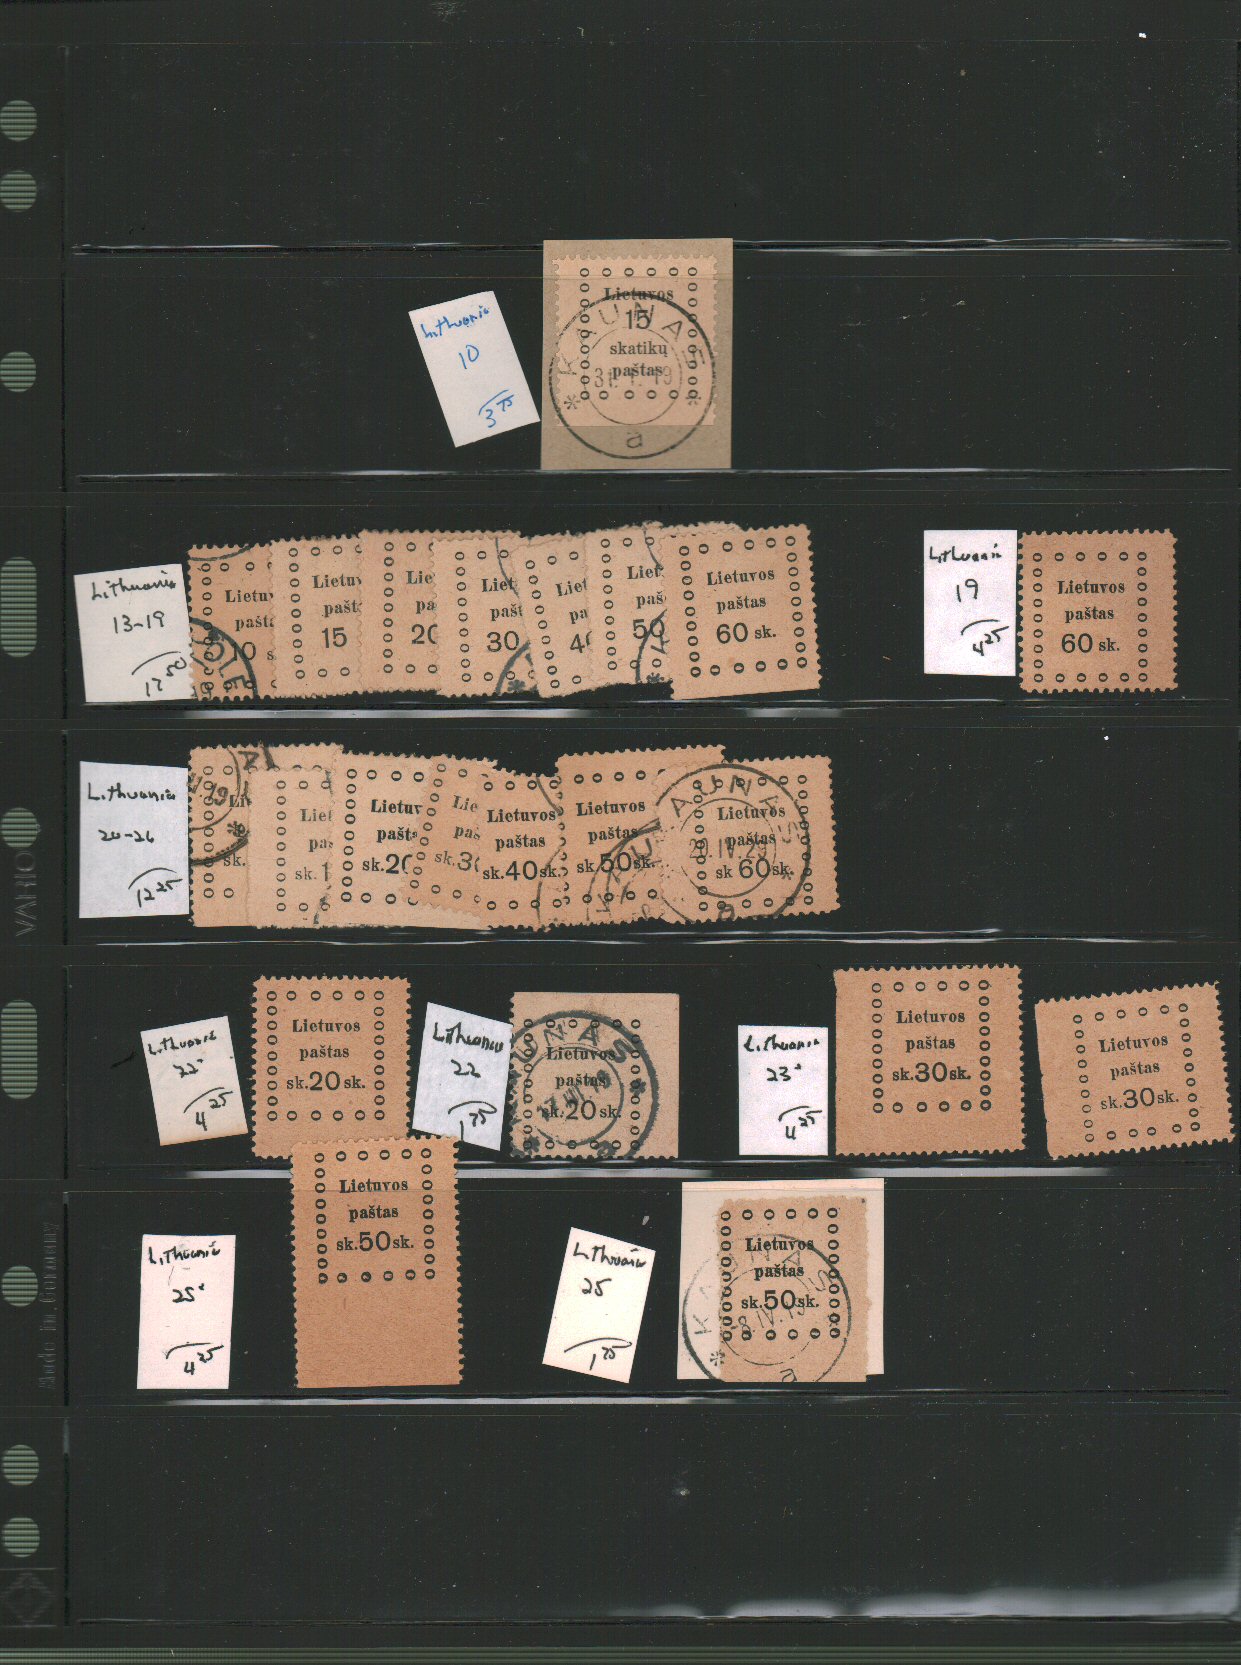 Lithuania
10
3 75
Lietuvos
15
skatikų
paštas
KAUNAS
31. I. 19
a
Lithuania
13-19
17 50
Lietuv
pašta
10 s
OLE
Lietuv
pašt
15
Lie
pa
20
Liet
pašt
30
Liet
pa
40
Liet
paš
50
Lietuvos
paštas
60 sk.
Lithuania
19
4 25
Lietuvos
paštas
60 sk.
Lithuania
20-26
12 25
Li
sk.
Liet
pa
sk. 1
Lietuv
pašt
sk. 20
Lie
paš
sk. 30
Lietuvos
paštas
sk. 40 sk.
Lietuvos
paštas
sk. 50 sk.
KAU
Lietuvos
paštas
sk 60 sk.
KAUNAS
20. IV. 29
a
VARIO
Lithuania
22*
4 25
Lietuvos
paštas
sk. 20 sk.
Lithuania
22
1 75
Lietuvos
paštas
sk. 20 sk.
UNAS
Lithuania
23*
4 25
Lietuvos
paštas
sk. 30 sk.
Lietuvos
paštas
sk. 30 sk.
Lithuania
25*
4 25
Lietuvos
paštas
sk. 50 sk.
Lithuania
25
1 75
Lietuvos
paštas
sk. 50 sk.
KAUNAS
8. IV. 19
a
Made in Germany